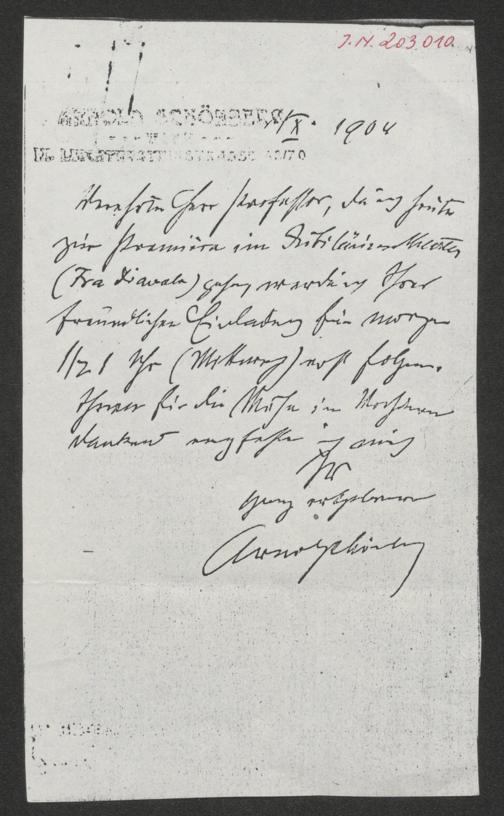 J.N. 203.010
ARNOLD SCHÖNBERG
WIEN
IX. LIECHTENSTEINSTRASSE 68/70
/X. 1904
Verehrter Herr Professor, da ich heute
zur Première im Jubiläumstheater
(Fra Diavolo) gehen werde ich Ihrer
freundlichen Einladung für morgen
1/2 1 Uhr (Mittwoch) erst folgen.
Ihnen für die Mühe im Vorhinein
dankend empfehle ich mich
Ihr
ganz ergebener
Arnold Schönberg